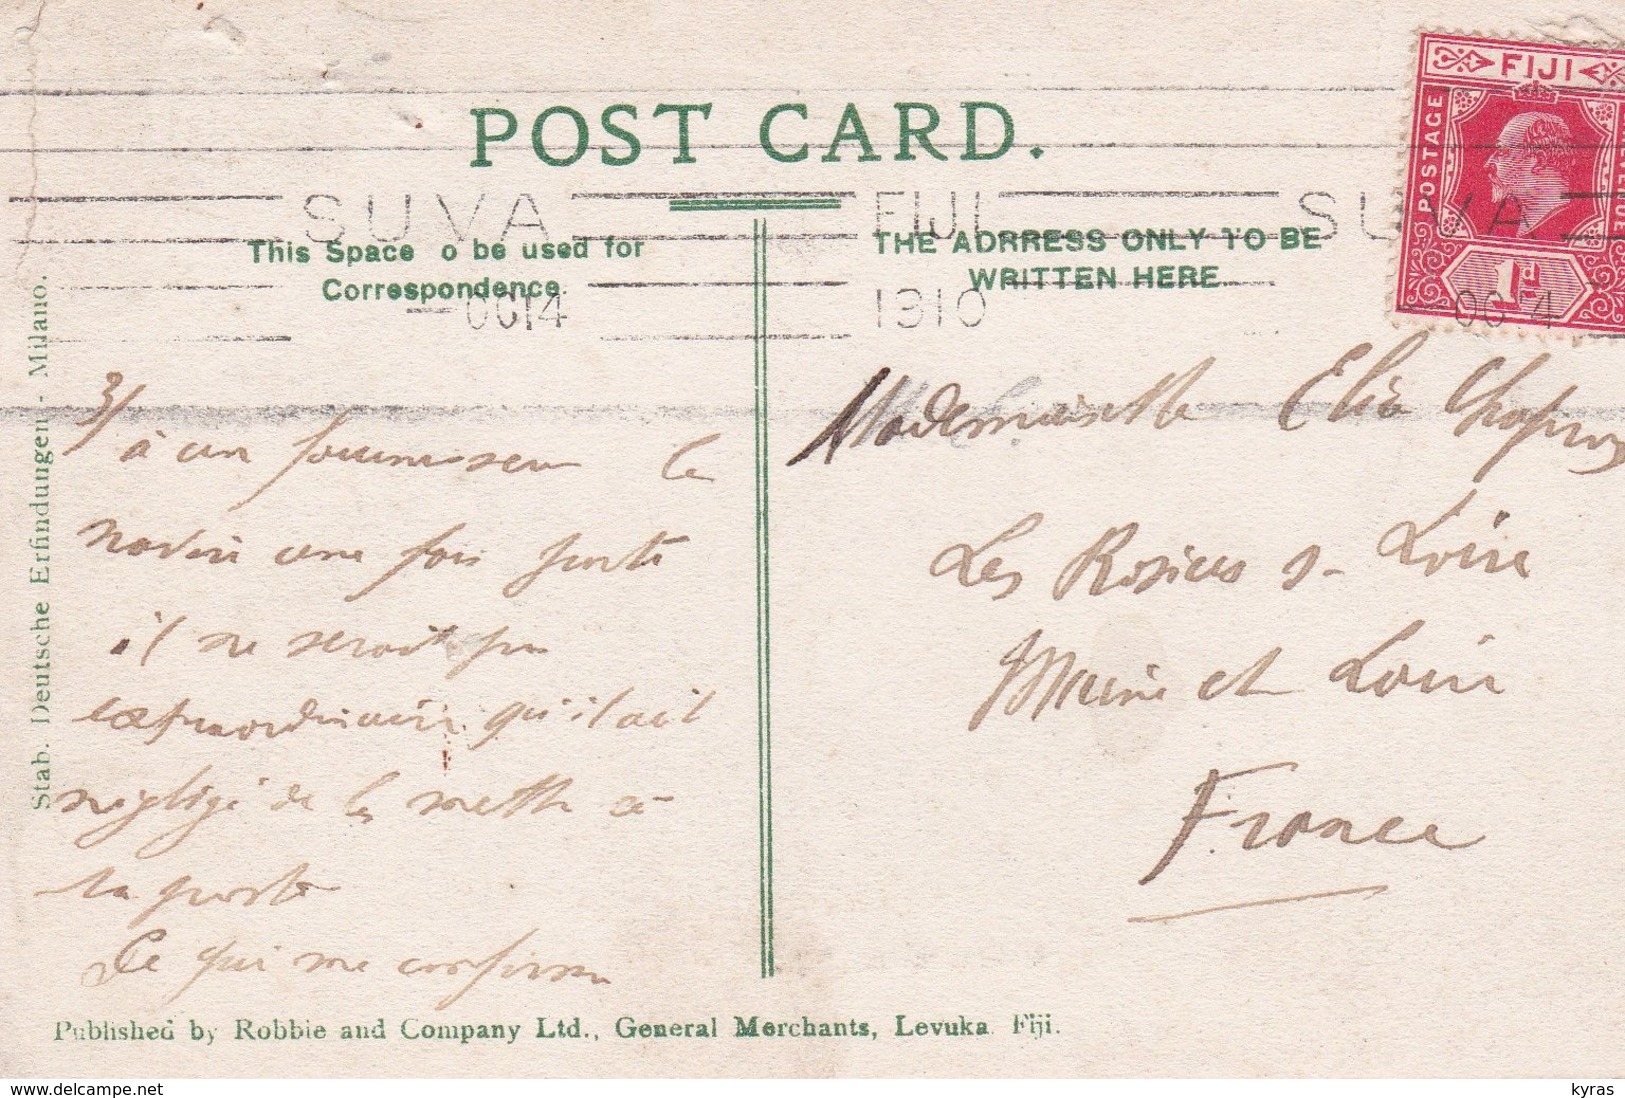 POST CARD.
FIJI
POSTAGE
1d
SUVA FIJI SUVA
OC14 1910 OC 4
This Space o be used for
Correspondence.
THE ADRRESS ONLY TO BE
WRITTEN HERE
3/
à un fournisseur le
navire une fois parti
il ne serait pas
extraordinaire qu'il ait
négligé de les mettre à
la poste
Ce qui me confirme
Mademoiselle Elia
Les Rosiers s- Loire
Maine et Loire
France
Stab. Deutsche Erfindungen - Milano.
Published by Robbie and Company Ltd., General Merchants, Levuka Fiji.
www.delcampe.net
kyras